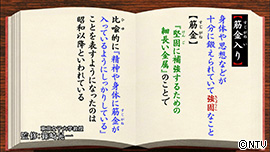 【筋金入り】
身体や思想などが
十分に鍛えられていて強固なこと
【筋金】
「堅固に補強するための
細長い金属」のことで
比喩的に「精神や身体に筋金が
入っているようにしっかりしている」
ことを表すようになったのは
昭和以降といわれている
©NTV